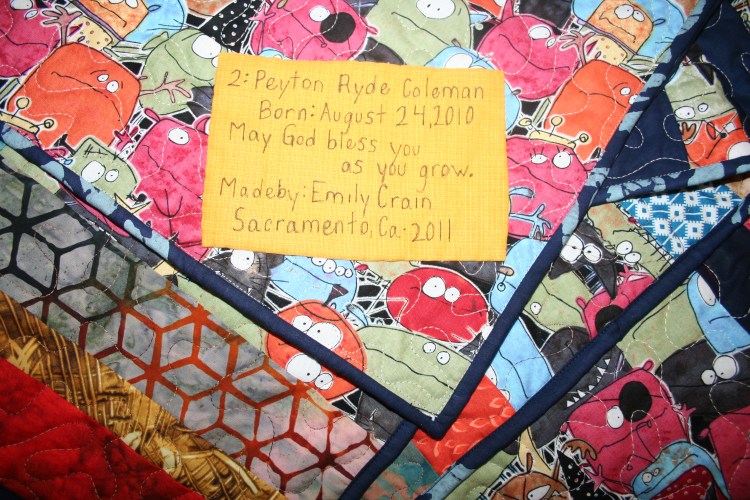 2: Peyton Ryde Coleman
Born: August 24, 2010
May God bless you
as you grow.
Made by: Emily Crain
Sacramento, Ca. 2011